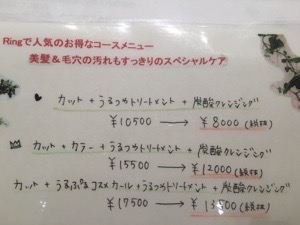 Ringで人気のお得なコースメニュー
美髪&毛穴の汚れもすっきりのスペシャルケア
カット + うるつやトリートメント + 炭酸クレンジング
¥10500 → ¥8000(税抜)
カット + カラー + うるつやトリートメント + 炭酸クレンジング
¥15500 → ¥12000(税抜)
カット + うるぷるコスメカール + うるつやトリートメント + 炭酸クレンジング
¥17500 → (税抜)